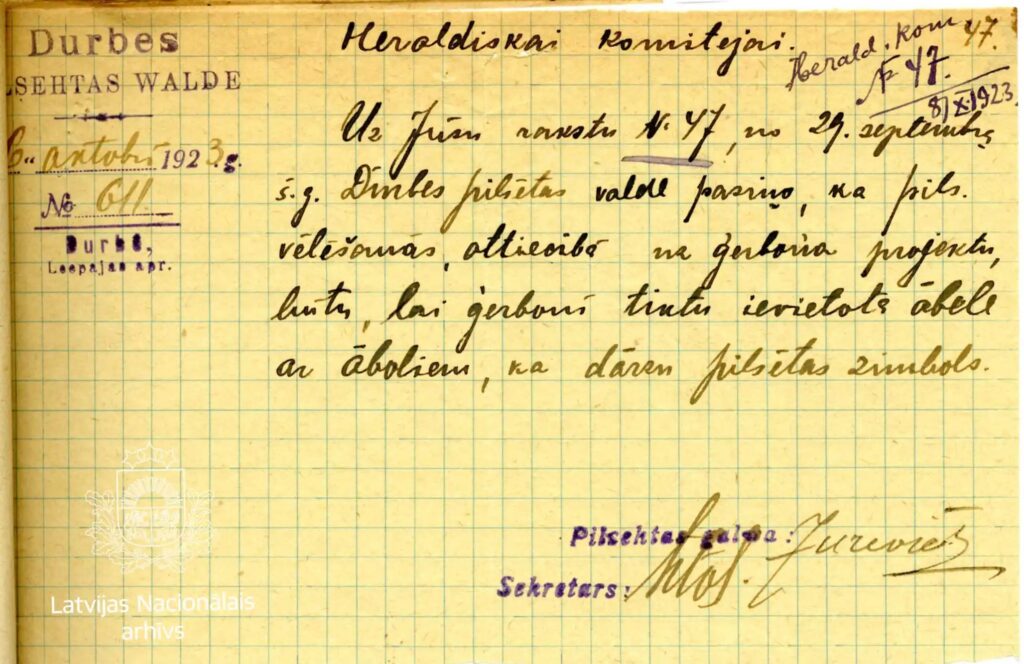 Durbes
LSEHTAS WALDE
6." oktobrī 1923.g.
№ 611
Durbē,
Leepajas apr.
Heraldiskai komitejai.
47.
Herald. kom
№ 47.
8/X.1923.
Uz Jūsu rakstu № 47, no 29. septembra
š.g. Durbes pilsētas valde paziņo, ka pils.
vēlēšanās, attiecībā uz ģerboņa projektu,
būtu, lai ģerbonī tiktu ievietota ābele
ar āboliem, kā dārzu pilsētas zimbols.
Pilsehtas galwa:
Sekretars:
Latvijas Nacionālais
arhīvs